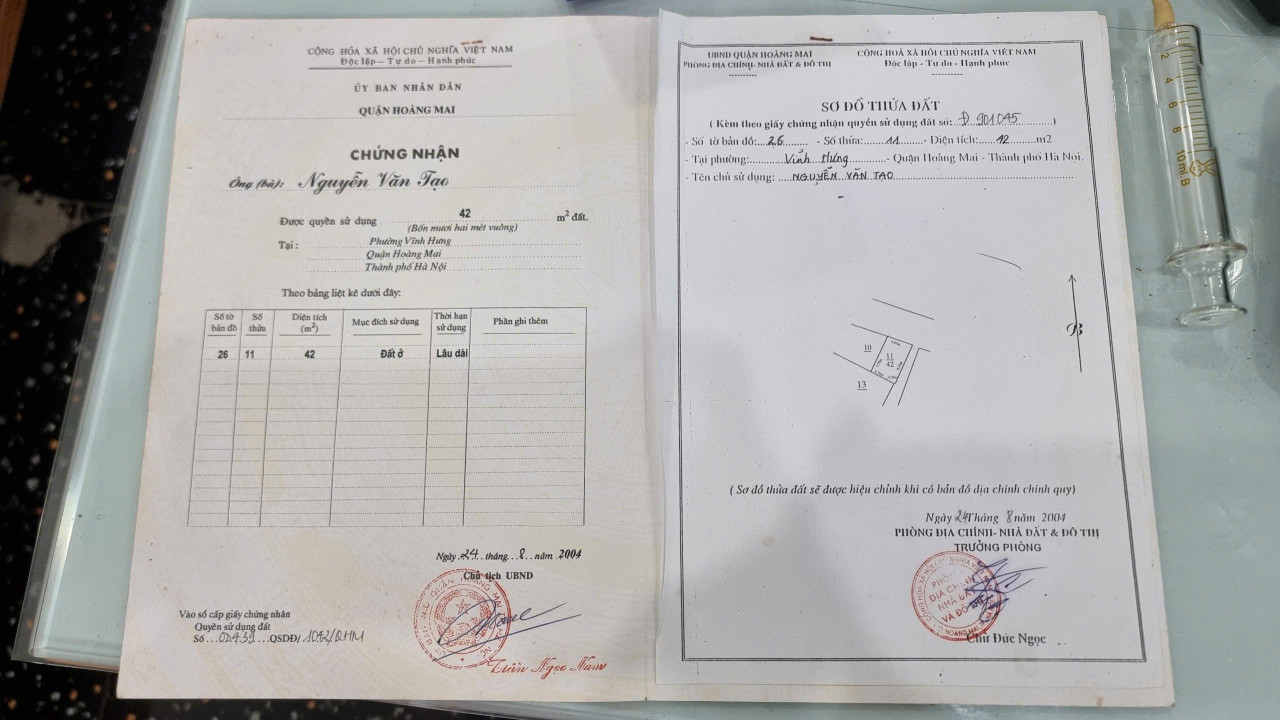 CỘNG HÒA XÃ HỘI CHỦ NGHĨA VIỆT NAM
Độc lập - Tự do - Hạnh phúc
ỦY BAN NHÂN DÂN
QUẬN HOÀNG MAI
CHỨNG NHẬN
Ông (bà): Nguyễn Văn Tạo
Được quyền sử dụng 42 m² đất.
(Bốn mươi hai mét vuông)
Tại : Phường Vĩnh Hưng
Quận Hoàng Mai
Thành phố Hà Nội
Theo bảng liệt kê dưới đây:
Số tờ bản đồ Số thửa Diện tích (m²) Mục đích sử dụng Thời hạn sử dụng Phần ghi thêm
26 11 42 Đất ở Lâu dài
Ngày 24 tháng 8 năm 2004
Chủ tịch UBND
Vào sổ cấp giấy chứng nhận
Quyền sử dụng đất
Số ...QSDĐ/
UBND QUẬN HOÀNG MAI
PHÒNG ĐỊA CHÍNH- NHÀ ĐẤT & ĐÔ THỊ
CỘNG HOÀ XÃ HỘI CHỦ NGHĨA VIỆT NAM
Độc lập - Tự do - Hạnh phúc
SƠ ĐỒ THỬA ĐẤT
( Kèm theo giấy chứng nhận quyền sử dụng đất số: Đ 901045 )
- Số tờ bản đồ: 26 - Số thửa: 11 - Diện tích: 42 m2
- Tại phường: Vĩnh Hưng - Quận Hoàng Mai - Thành phố Hà Nội.
- Tên chủ sử dụng: NGUYỄN VĂN TẠO
B
10
11
42
13
( Sơ đồ thửa đất sẽ được hiệu chỉnh khi có bản đồ địa chính chính quy)
Ngày 24 Tháng 8 năm 2004
PHÒNG ĐỊA CHÍNH- NHÀ ĐẤT & ĐÔ THỊ
TRƯỞNG PHÒNG
Chử Đức Ngọc
2
4
6
8
10ml B